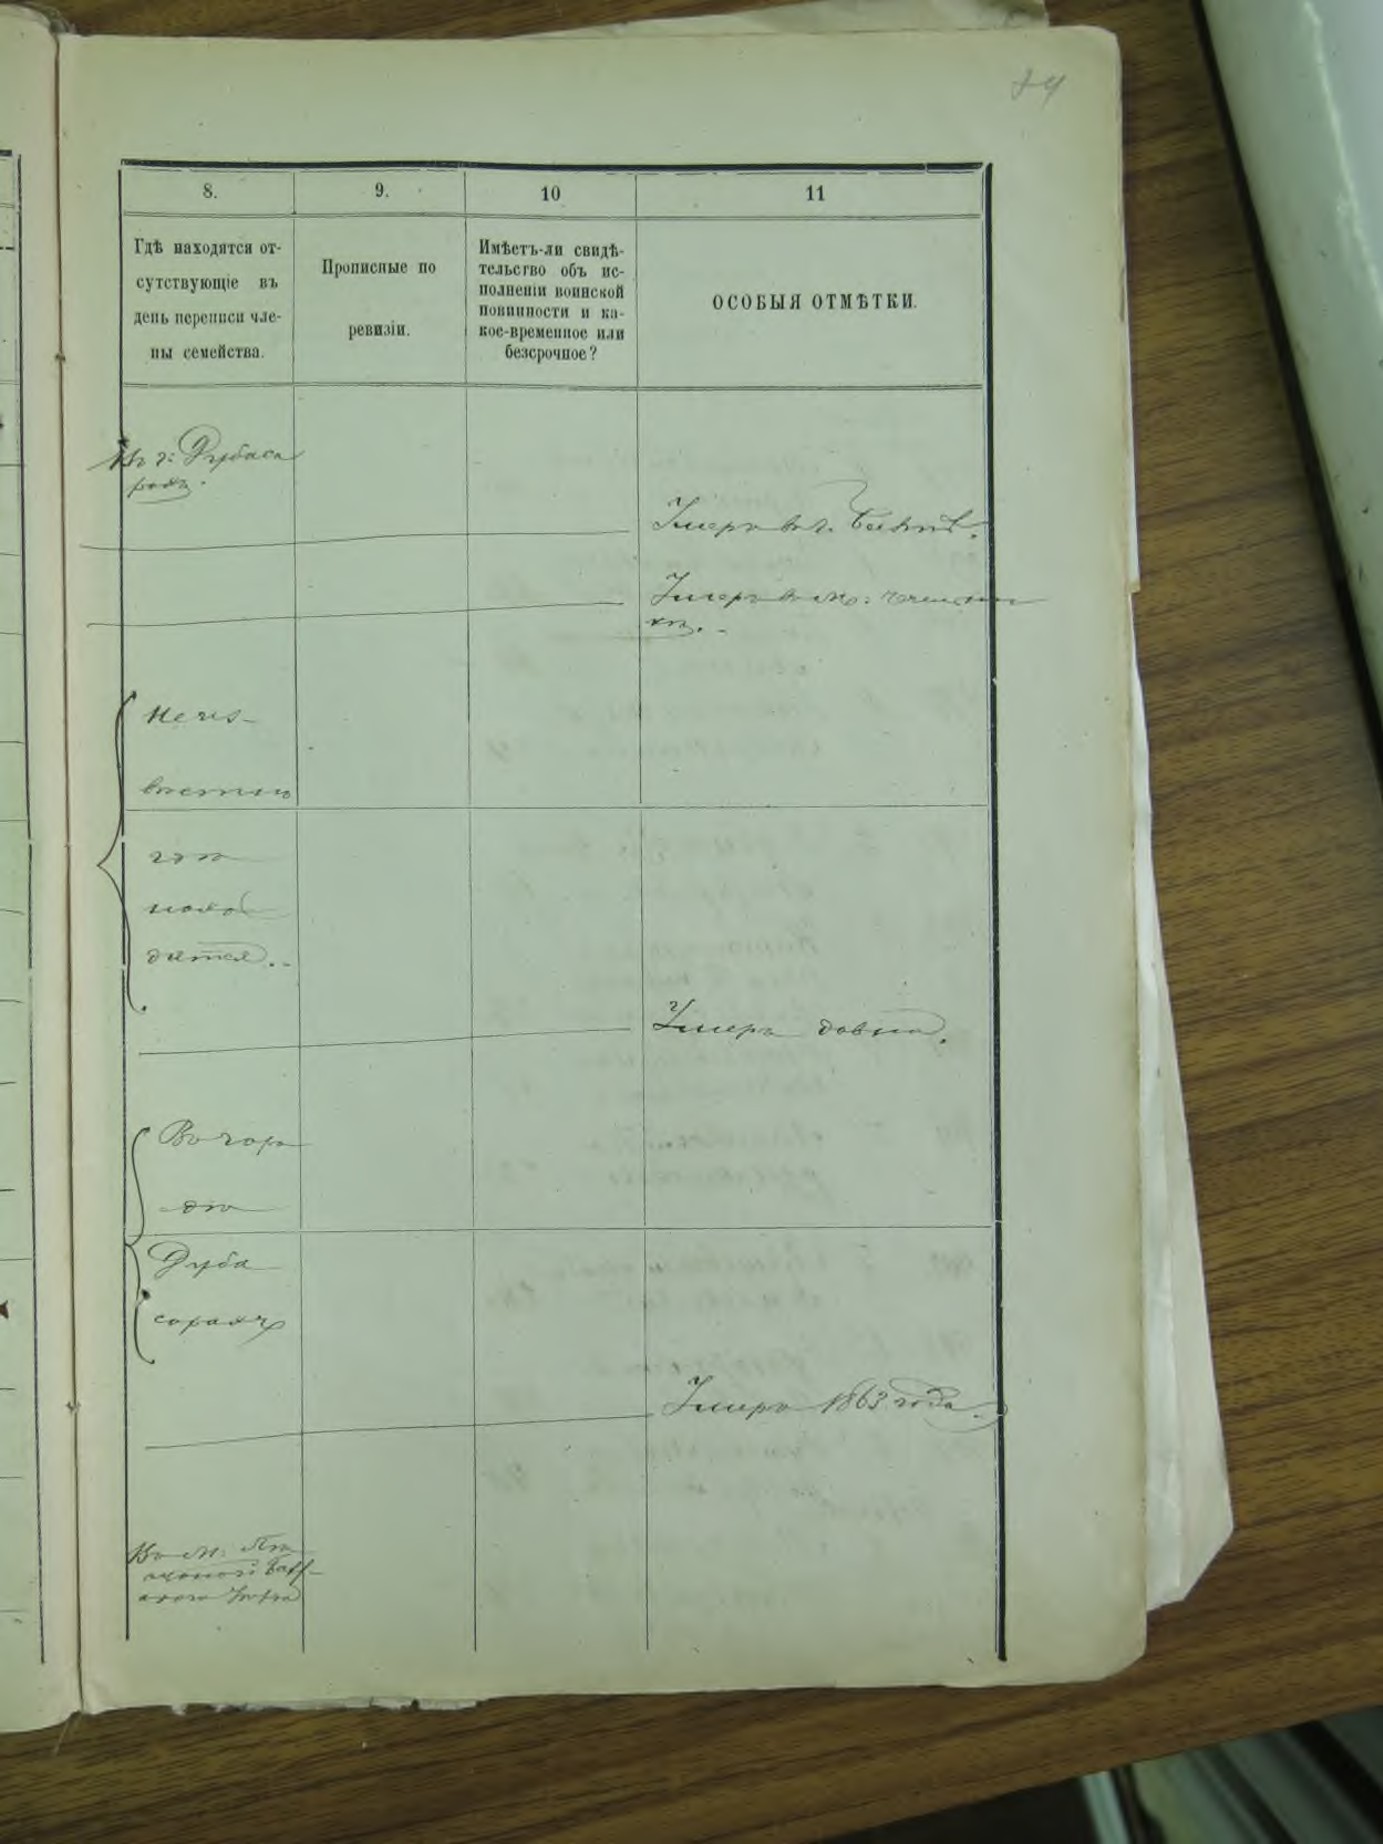 74
8.
9.
10
11
Гдѣ находятся от-
сутствующіе въ
день переписи чле-
ны семейства.
Прописные по
ревизіи.
Имѣетъ-ли свидѣ-
тельство объ ис-
полненіи воинской
повинности и ка-
кое-временное или
безсрочное?
ОСОБЫЯ ОТМѢТКИ.
Въ г: Дубаса
рахъ.
Умеръ въ г.
Умеръ въ м:
Неиз-
вѣстно
гдѣ
нахо
дится.
Умеръ давно.
Въ горо
дѣ
Дуба
сарахъ
Умеръ 1863 года.
Въ м: